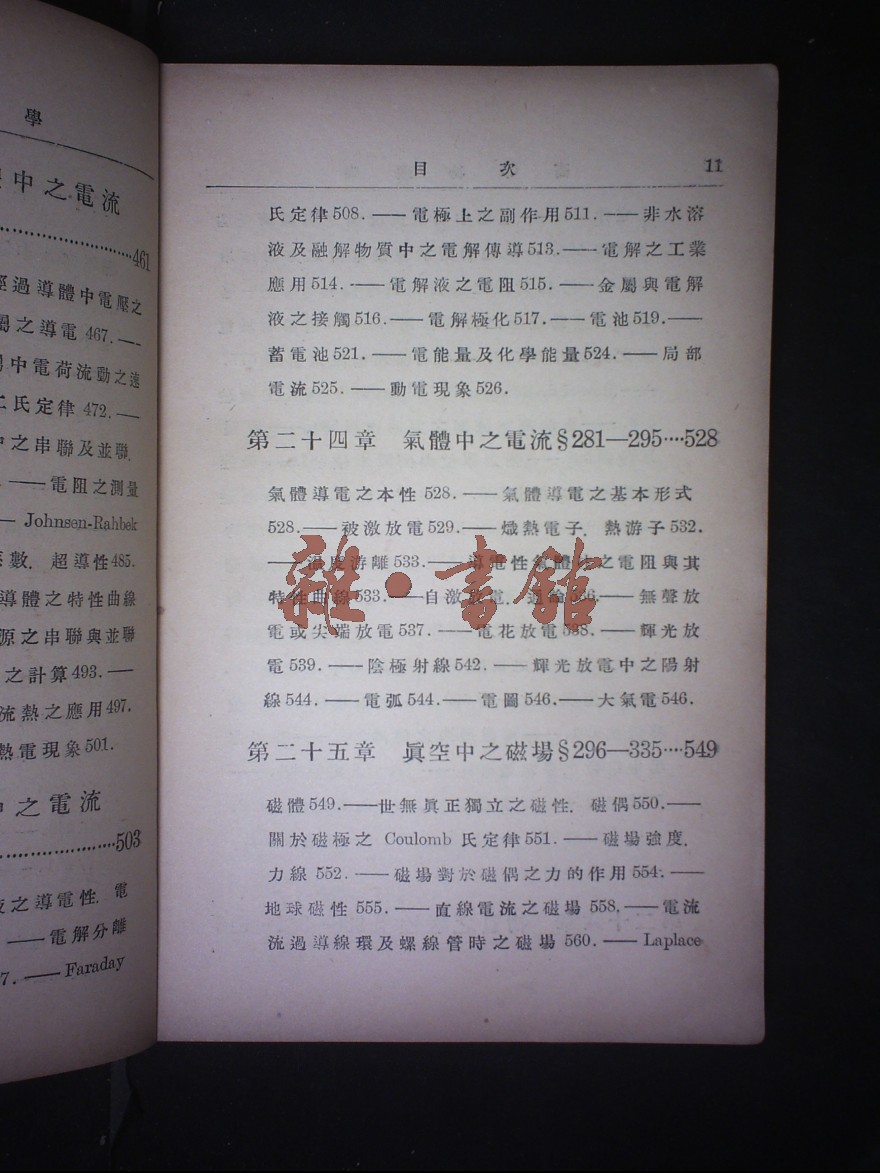 學
中之電流
461
經過導體中電壓之
之導電 467.——
中電荷流動之速
氏定律 472.——
中之串聯及並聯.
——電阻之測量
— Johnsen-Rahbek
數. 超導性485.
導體之特性曲線
源之串聯與並聯
之計算493.——
流熱之應用497.
熱電現象501.
中之電流
503
之導電性. 電
——電解分離
7.——Faraday
目 次 11
氏定律508.——電極上之副作用511.——非水溶
液及融解物質中之電解傳導513.——電解之工業
應用514.——電解液之電阻515.——金屬與電解
液之接觸516.——電解極化517.——電池519.——
蓄電池521.——電能量及化學能量524.——局部
電流525.——動電現象526.
第二十四章 氣體中之電流§281—295····528
氣體導電之本性528.——氣體導電之基本形式
528.——被激放電529.——熾熱電子. 熱游子532.
——溫度游離533.——導電性氣體中之電阻與其
特性曲線533.——自激放電. 536.——無聲放
電或尖端放電537.——電花放電538.——輝光放
電539.——陰極射線542.——輝光放電中之陽射
線544.——電弧544.——電圖546.——大氣電546.
雜·書館
第二十五章 眞空中之磁場§296—335····549
磁體549.——世無眞正獨立之磁性. 磁偶550.——
關於磁極之 Coulomb 氏定律551.——磁場強度.
力線 552.——磁場對於磁偶之力的作用 554.——
地球磁性 555.——直線電流之磁場 558.——電流
流過導線環及螺線管時之磁場 560.——Laplace